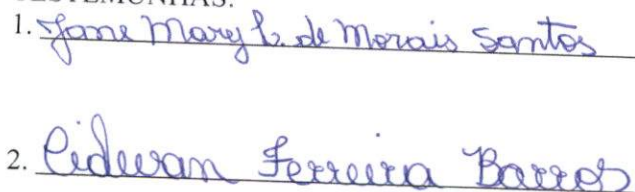 TESTEMUNHAS:
1. Jane Mary L. de Morais Santos
2. Cidevan Ferreira Barros